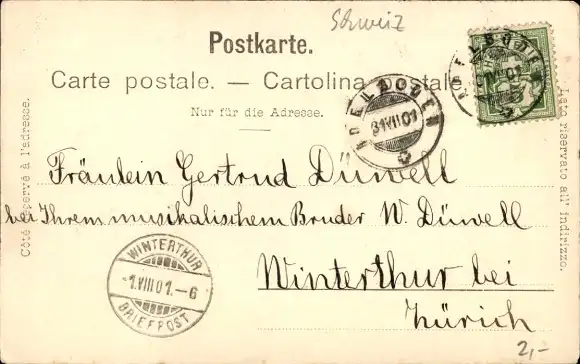 Schweiz
Postkarte.
Carte postale. — Cartolina postale.
Nur für die Adresse.
Côté réservé à l'adresse.
Lato riservato all' indirizzo.
ADELBODEN
31 VII 01
ADELBODEN
31 VII 01
Fräulein Gertrud Düwell
bei Ihrem musikalischem Bruder W. Düwell
Winterthur bei
Zürich
WINTERTHUR
-1.VIII 01.-6
BRIEFPOST
2,-